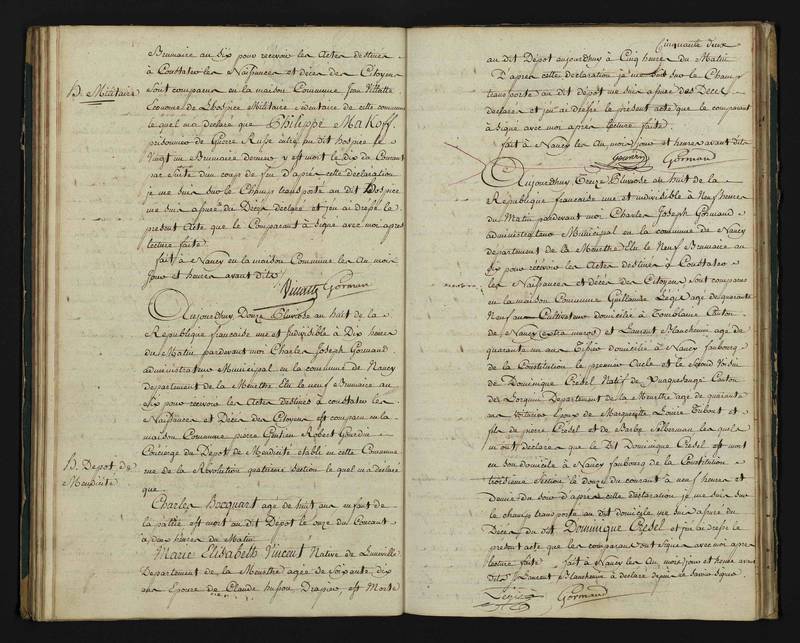 Brumaire an six pour recevoir les Actes destinés
à Constater les Naissances et décès des Citoyens
H. Militaire
sont comparus en la maison Commune Jean Villatte
Econome de L'hospice Militaire sedentaire de cette commune
lequel m'a declaré que Philippe Makoff
prisonnier de Guerre Russe entré au dit hospice le
Vingt un Brumaire dernier y est mort le dix du Courant
par suite d'un coup de feu D'après cette declaration
je me suis sur le Champ transporté au dit Hospice
me suis assuré du Décès declaré et j'en ai dressé le
present Acte que le Comparant à Signé avec moi apres
lecture faite.
fait à Nancy en la maison Commune les An mois
Jour et heures avant dits
Villatte Gormand
Aujourdhuy Douze Pluviose an huit de la
République française une et Indivisible à Dix heures
du Matin pardevant moi Charles Joseph Gormand
administrateur Municipal en la commune de Nancy
departement de la Meurthe Elu le neuf Brumaire an
six pour recevoir les Actes destinés à constater les
Naissances et Décès des Citoyens est comparu en la
maison Commune pierre Gentien Robert Gourdin
Concierge du Depot de Mendicité etabli en cette Commune
H. Depot de
Mendicité
rue de la Révolution quatrieme section lequel m'a declaré
que
Charles Bocquart agé de huit ans enfant de
la patrie est mort au dit Depot le onze du Courant
à deux heures du Matin
Marie Elisabeth Vincent Native de Luneville
Departement de la Meurthe agée de soixante dix
ans Epouse de Claude husson Drapier, est Morte
Cinquante deux
au dit Dépot aujourdhuy à Cinq heures du Matin
D'apres cette Declaration je me suis sur le Champ
transporté au dit dépot me suis assuré des Décès
declarés et j'en ai dressé le present acte que le comparant
à Signé avec moi apres lecture faite.
fait à Nancy les An mois jour et heures avant dits
Gourdin Gormand
Aujourdhuy Treize Pluviose an huit de la
République française une et indivisible à Neuf heures
du Matin pardevant moi Charles Joseph Gormand
administrateur Municipal en la commune de Nancy
departement de la Meurthe Elu le Neuf Brumaire an
six pour recevoir les Actes destinés à Constater
les Naissances et décès des Citoyens sont comparus
en la maison Commune Guillaume Légé age de quarante
Neuf ans Cultivateur domicilié à Tomblaine Canton
de Nancy (extra muros) et Laurent Blancheur age de
quarante un ans Tissier domicilié à Nancy faubourg
de la Constitution le premier Oncle et le second Voisin
de Dominique Cresel Natif de Canton
de Lorquin Departement de la Meurthe age de quarante
ans Voiturier Epoux de Marguerite Louise Tibout et
fils de pierre Cresel et de Barbe Alberman lesquels
m'ont déclaré que le Dit Dominique Cresel est mort
en son domicile à Nancy faubourg de la Constitution
troisieme Section le douze du courant à neuf heures et
Demie du soir d'après cette déclaration je me suis sur
le champ transporté au dit domicile me suis assuré du
Décès du dit Dominique Cresel et j'en ai dressé le
présent acte que les comparans ont Signé avec moi apres
lecture faite. fait à Nancy les An mois jours et heures avant
dits. Laurent Blancheur à déclaré de ne savoir signer
Légé Gormand